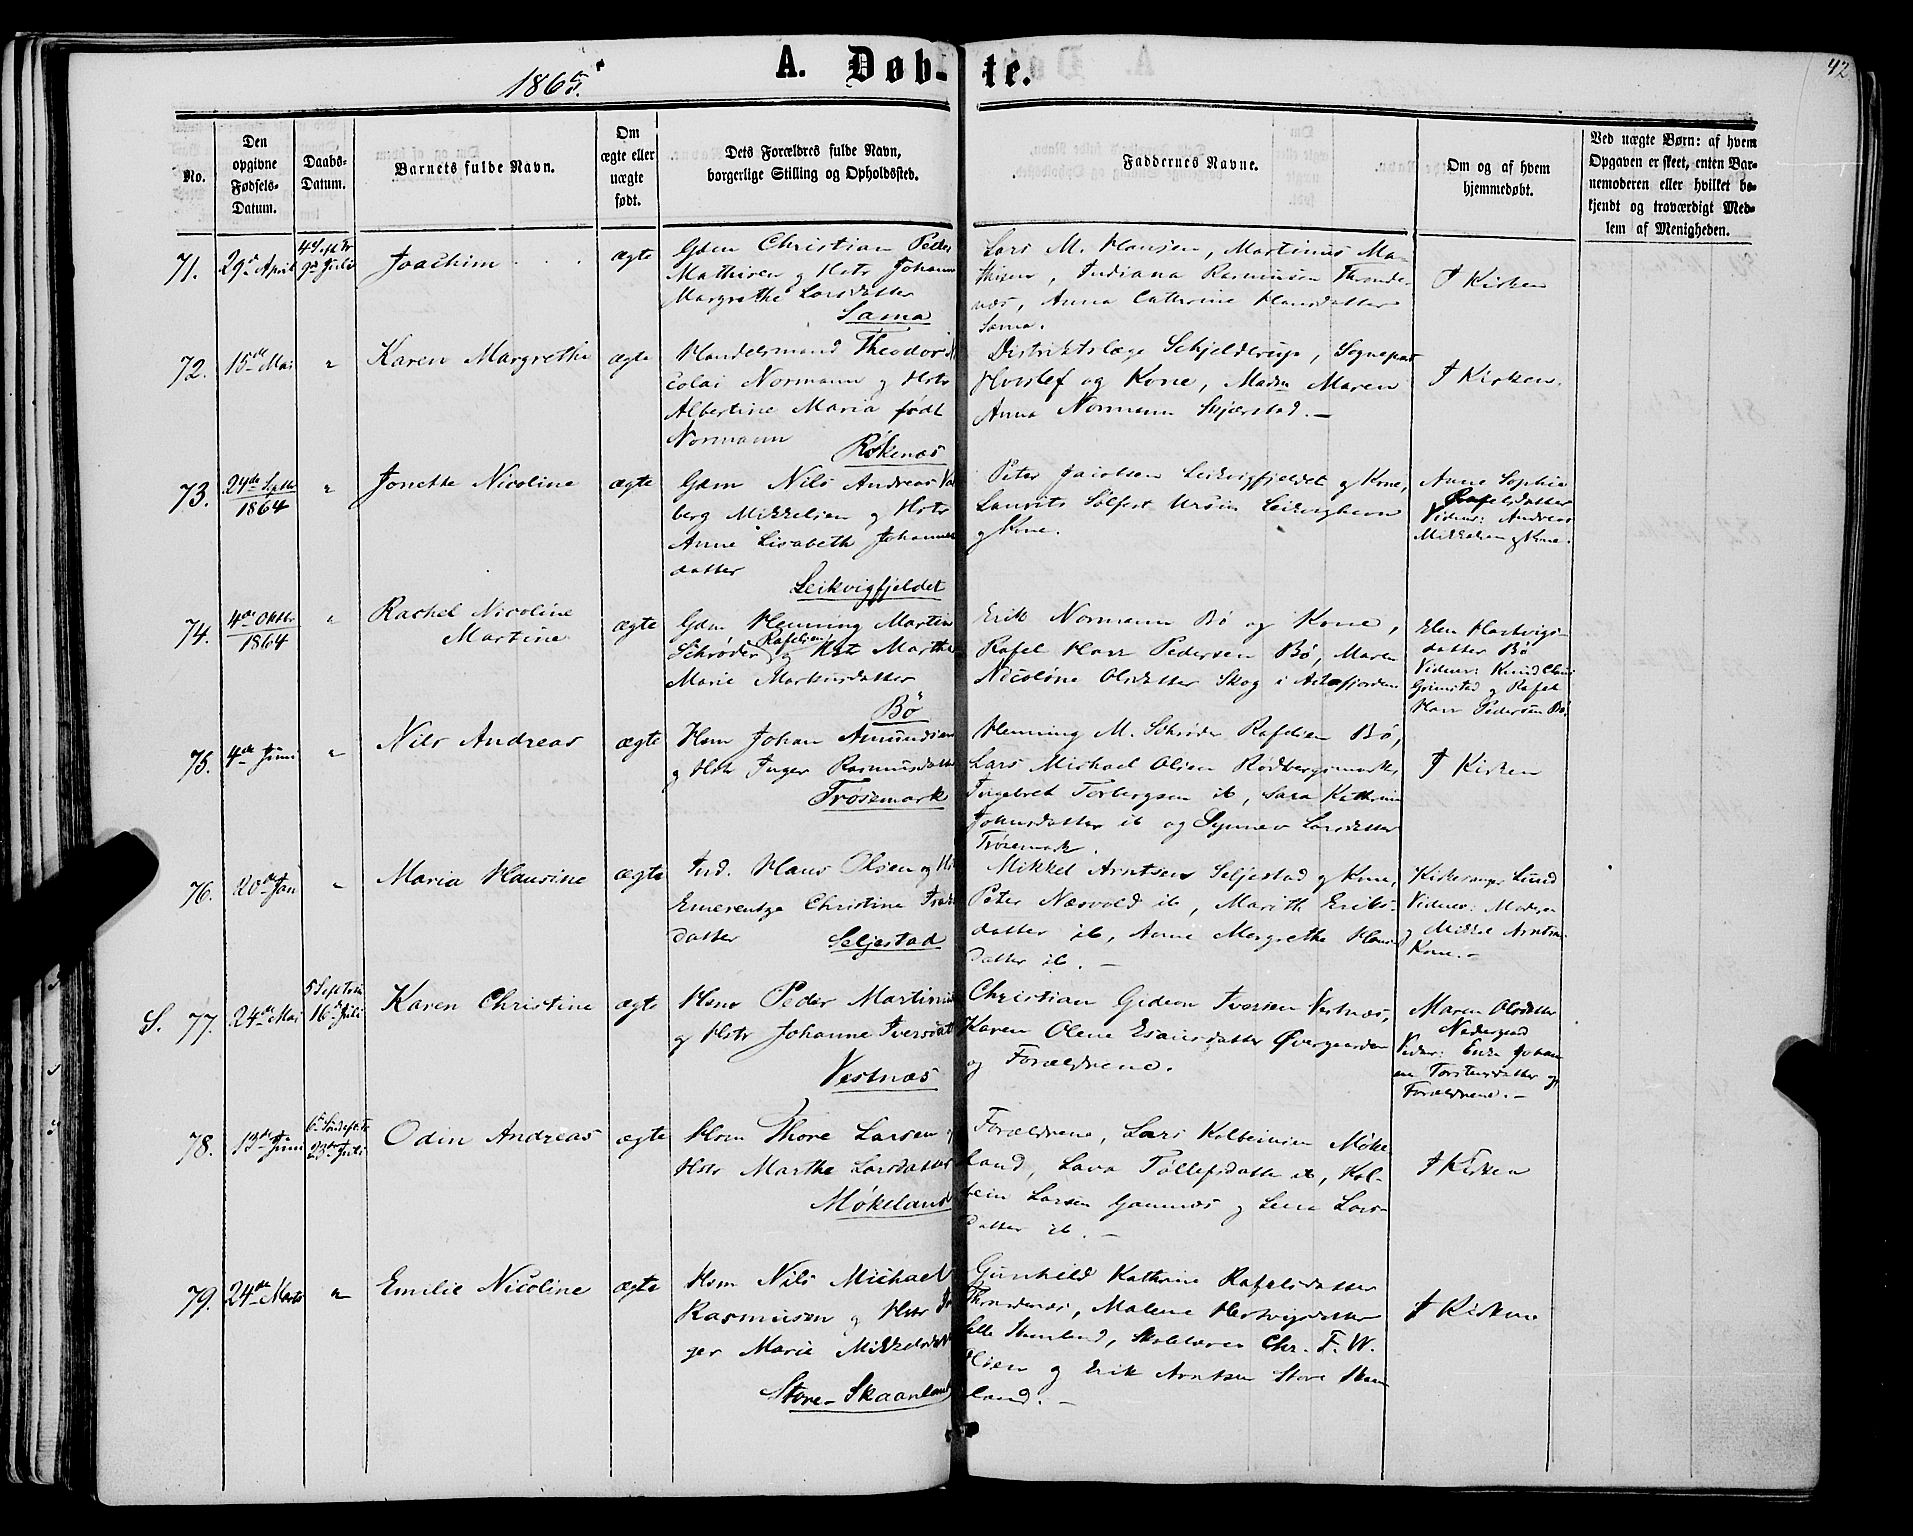 42
1865.
A. Døb- te.
No.
Den opgivne Fødsels-Datum.
Daabs-Datum.
Barnets fulde Navn.
Om ægte eller uægte født.
Dets Forældres fulde Navn, borgerlige Stilling og Opholdssted.
Faddernes Navne.
Om og af hvem hjemmedøbt.
Ved uægte Børn: af hvem Opgaven er skeet, enten Barnemoderen eller hvilket bekjendt og troværdigt Medlem af Menigheden.
71.
29de April
9de Juli
Joachim
ægte
Gdm Christian Peder
Mathisen og Hstr Johanna
Margrethe Larsdatter
Sama
Lars M. Hansen, Martinus Ma-
thisen, Indiana Rasmussen Thronde-
næs, Anna Cathrine Hansdatter
Sama.
I Kirken
72.
15de Mai
"
Karen Margrethe
ægte
Handelsmand Theodor Ni
colai Normann og Hstr
Albertine Maria født
Normann
Røkenæs
Distriktslæge Schjelderup, Sognepr
Hvoslef og Kone, Madm Maren
Anna Normann Skjærstad. —
I Kirken.
73.
24de Septbr
1864
"
Jonette Nicoline
ægte
Gdm Nils Andreas
berg Mikkelsen og Hstr
Anne Lisabeth Johannes
datter
Leikvigfjeldet
Peter Jacobsen Leikvigfjeldet og Kone,
Laurits Sølfest Ursin
og Kone.
Anne Sophie
Rafelsdatter
Vidner: Andreas
Mikkelsen og Kone.
74.
4de Oktbr
1864
"
Rachel Nicoline
Martine
ægte
Gdm Henning Martin
Schrøder Rafelsen og Hstr Marthe
Marie Markusdatter
Bö
Erik Normann Bö og Kone,
Rafel Hass Pedersen Bö, Maren
Nicoline Olsdatter Skog i Astafjorden
Elen Hartvigs-
datter Bö
Vidner: Knud Claus
Grimstad og Rafel
Hass Pedersen Bö.
75.
4de Juni
"
Nils Andreas
ægte
Hsm Johan Amundsen
og Hstr Inger Rasmusdatter
Trøsemark
Henning M. Schrøder Rafelsen Bö,
Lars Michael Olsen Rødbergsmarken
Ingebret Torbergsen ib, Sara Kathrine
Johnsdatter ib og Synnev Larsdatter
Trøsemark.
I Kirken
76.
20de Jan
"
Maria Hansine
ægte
Ind. Hans Olsen og H
Emerentze Christine
datter
Seljestad
Mikkel Arntsen Seljestad og Kone,
Peter Næsvold ib, Marith Eriks-
datter ib, Anne Margrethe Hans
datter ib. —
Kirkesanger Lund
Vidner: Moderen
og Mikkel Arntsens
Kone. —
S. 77.
24de Mai
16de Juli
Karen Christine
ægte
Hsm Peder Martinus
og Hstr Johanne Iversdat
Vestnæs
Christian Gideon Iversen Vestnæs,
Karen Olene Esaiasdatter Øvergaarden
og Forældrene.
Maren Olsdatter
Nedergaard
Vidner: Enke Johan
ne Torstensdatter og
Forældrene. —
78.
13de Juni
23de Juli
Odin Andreas
ægte
Hsm Thore Larsen og
Hstr Marthe Larsdatter
Møkeland
Forældrene, Lars Kolbeinsen Møke
land, Lava Tollefsdatter ib, Kol-
bein Larsen Gausnæs og Lena Lars-
datter ib. —
I Kirken
79.
24de Marts
"
Emilie Nicoline
ægte
Hsm Nils Michael
Rasmussen og Hstr In
ger Marie Mikkelsdatt
Store-Skaanland
Gunhild Kathrine Rafelsdatter
Throndenæs, Malene Hartvigsdatter
Lille Skaanland, Skolelærer Chr. F. W.
Olsen og Erik Arntsen Store Skaan
land. —
I Kirken